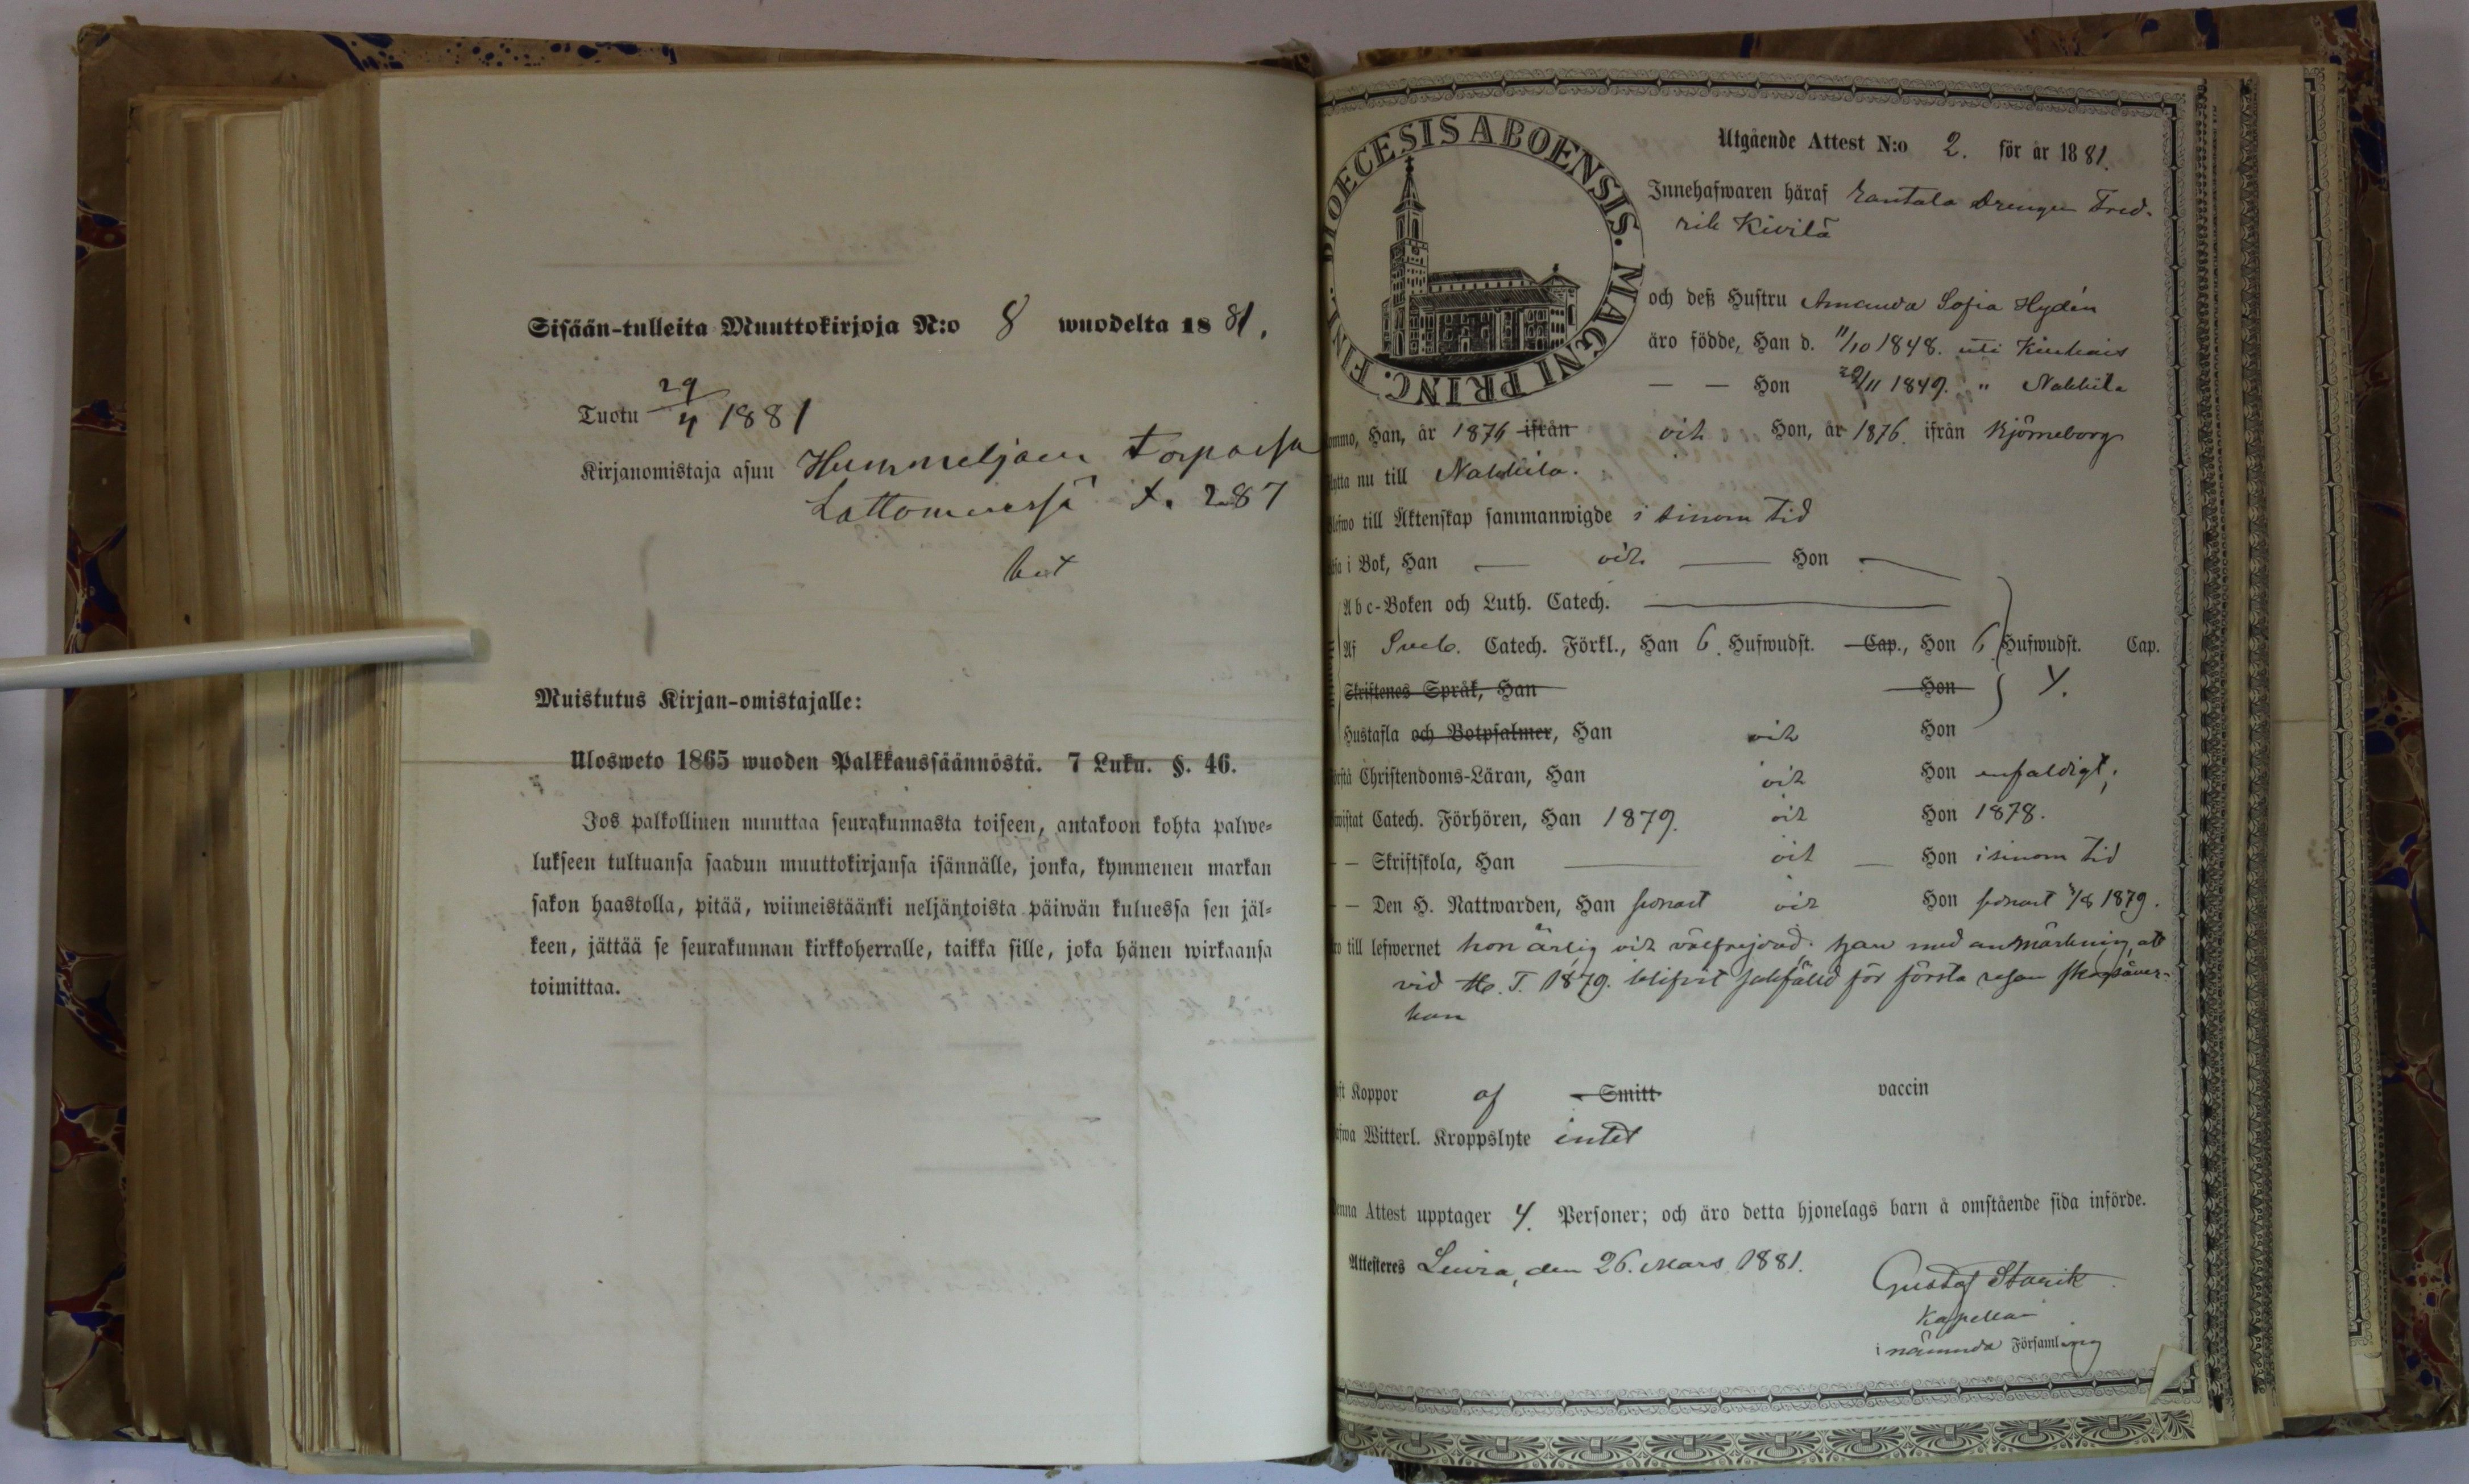 Sisään-tulleita Muuttokirjoja N:o 8 wuodelta 1881.
Tuotu 29/4 1881
Kirjanomistaja asuu Hummeljoen torpassa
Lattomeressä t. 287
Muistutus Kirjan-omistajalle:
Ulosweto 1865 wuoden Palkkaussäännöstä. 7 Luku. §. 46.
Jos palkollinen muuttaa seurakunnasta toiseen, antakoon kohta palwe=
lukseen tultuansa saadun muuttokirjansa isännälle, jonka, kymmenen markan
sakon haastolla, pitää, wiimeistäänki neljäntoista päiwän kuluessa sen jäl=
keen, jättää se seurakunnan kirkkoherralle, taikka sille, joka hänen wirkaansa
toimittaa.
DIOECESIS ABOENSIS. MAGNI PRINC. FINL.
Utgående Attest N:o 2. för år 1881.
Innehafwaren häraf Rantala Drengen Fred-
rik Kivilä
och deß Hustru Amanda Sofia Hydén
äro födde, Han d. 11/10 1848. uti Kiukais
— — Hon 29/11 1849. " Nakkila
ommo, Han, år 1876 ifrån och Hon, år 1876. ifrån Björneborg
ytta nu till Nakkila.
lefwo till Äktenskap sammanwigde i sinom tid
i Bok, Han — och — Hon —
Abc-Boken och Luth. Catech. —
Af Sveb. Catech. Förkl., Han 6. Hufwudst. Cap., Hon 6 Hufwudst. Cap.
Skriftenes Språk, Han Hon
Hustafla och Botpsalmer, Han och Hon
Christendoms-Läran, Han och Hon enfaldigt;
wistat Catech. Förhören, Han 1879. och Hon 1878.
— — Skriftskola, Han — och — Hon i sinom tid
— — Den H. Nattwarden, Han senast och Hon senast 3/8 1879.
ro till lefwernet hon ärlig och välfrejdad; han med anmärkning, att
vid H. T. 1879. blifvit sakfälld för första resan skogsåver-
kan
Koppor af Smitt vaccin
Witterl. Kroppslyte intet
enna Attest upptager 4. Personer; och äro detta hjonelags barn å omstående sida införde.
Attesteres Luvia, den 26. Mars 1881.
Gustaf Starik
Kapellan
i nämnda Församling